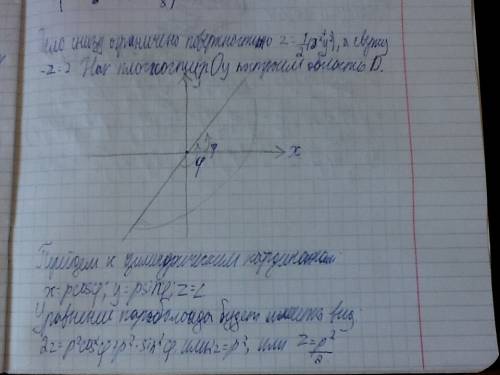 Тело снизу ограничено поверхностью z = 1/2(x²+y²), а сверху
- z=2 На плоскости xOy получаем область D.
x
φ
Перейдем к цилиндрическим координатам
x=ρcosφ; y=ρsinφ; z=z
Уравнение параболоида будет иметь вид:
2z=ρ²cos²φ+ρ²·sin²φ или 2z=ρ², или z=ρ²/2